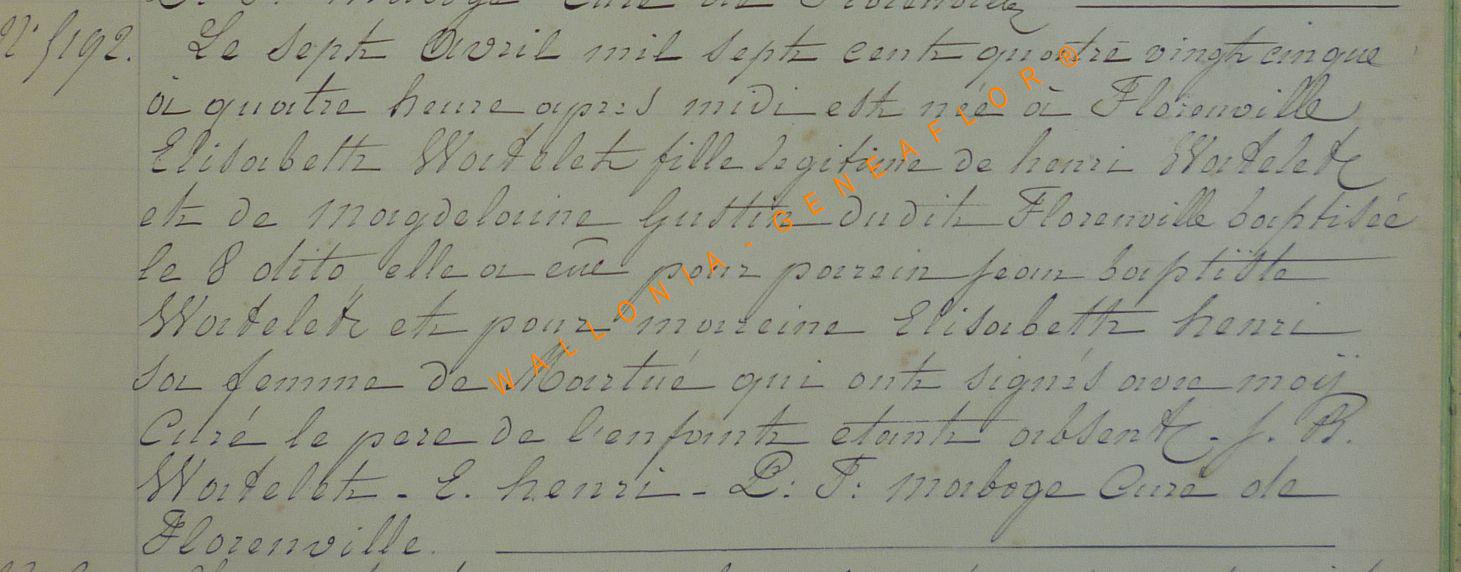 N° 5192. Le sept avril mil sept cent quatre vingt cinque
à quatre heure apres midi est née à Florenville
Elisabeth Watelet fille legitime de henri Watelet
et de Magdelaine Gustin dudit Florenville baptisée
le 8 dito, elle a eûe pour parein jean baptiste
Watelet et pour mareine Elisabeth henri
sa femme de Martué qui ont signés avec moÿ
Curé le pere de l'enfant etant absent - J. B.
Watelet - E. henri - P: F: Maboge Curé de
Florenville.
WALLONIA - GENEAFLOR ®